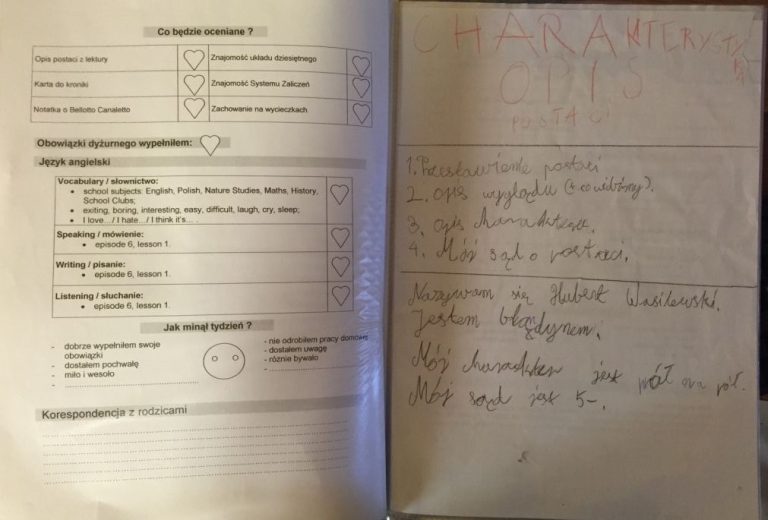 Co będzie oceniane ?
Opis postaci z lektury
Znajomość układu dziesiętnego
Karta do kroniki
Znajomość Systemu Zaliczeń
Notatka o Bellotto Canaletto
Zachowanie na wycieczkach
Obowiązki dyżurnego wypełniłem:
Język angielski
Vocabulary / słownictwo:
• school subjects: English, Polish, Nature Studies, Maths, History,
School Clubs;
• exiting, boring, interesting, easy, difficult, laugh, cry, sleep;
• I love.../ I hate.../ I think it's...
Speaking / mówienie:
• episode 6, lesson 1.
Writing / pisanie:
• episode 6, lesson 1.
Listening / słuchanie:
• episode 6, lesson 1.
Jak minął tydzień ?
- dobrze wypełniłem swoje
obowiązki
- dostałem pochwałę
- miło i wesoło
- nie odrobiłem pracy domowej
- dostałem uwagę
- różnie bywało
Korespondencja z rodzicami
CHARAKTERYSTYKA
OPIS
POSTACI
1. Przestawienie postaci
2. opis wyglądu (to co widzimy).
3. opis charakteru.
4. Mój sąd o postaci.
Nazywam się Hubert Wasilewski.
Jestem błądynem.
Mój charakter jest pół na pół.
Mój sąd jest 5-.